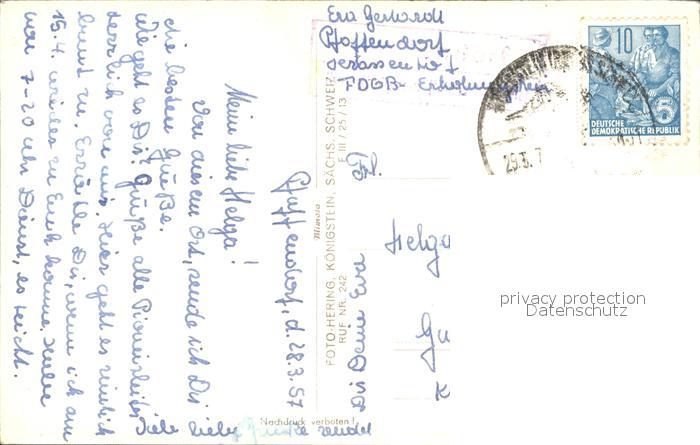 Eva Gerhardt
Pfaffendorf
Terassenhof
FDGB-Erholungsheim
10
5
DEUTSCHE
DEMOKRATISCHE REPUBLIK
29.3.
Pfaffendorf, d. 28.3.57
Meine liebe Helga!
Von diesem Ort, sende ich Dir
die besten Grüße.
Wie geht es Dir? Grüße alle Pionierleiter
herzlich von mir. Hier geht es ziemlich
bunt zu. Erzähle Dir, wenn ich am
15.4. wieder zu Euch komme. Habe
von 7-20 Uhr Dienst, es reicht.
Viele liebe Grüße sendet
Dir Deine Eva
Mimosa
FOTO-HERING, KÖNIGSTEIN, SÄCHS. SCHWEIZ
RUF NR. 242
F III / 25 / 13
Nachdruck verboten!
Frl.
Helga
privacy protection
Datenschutz